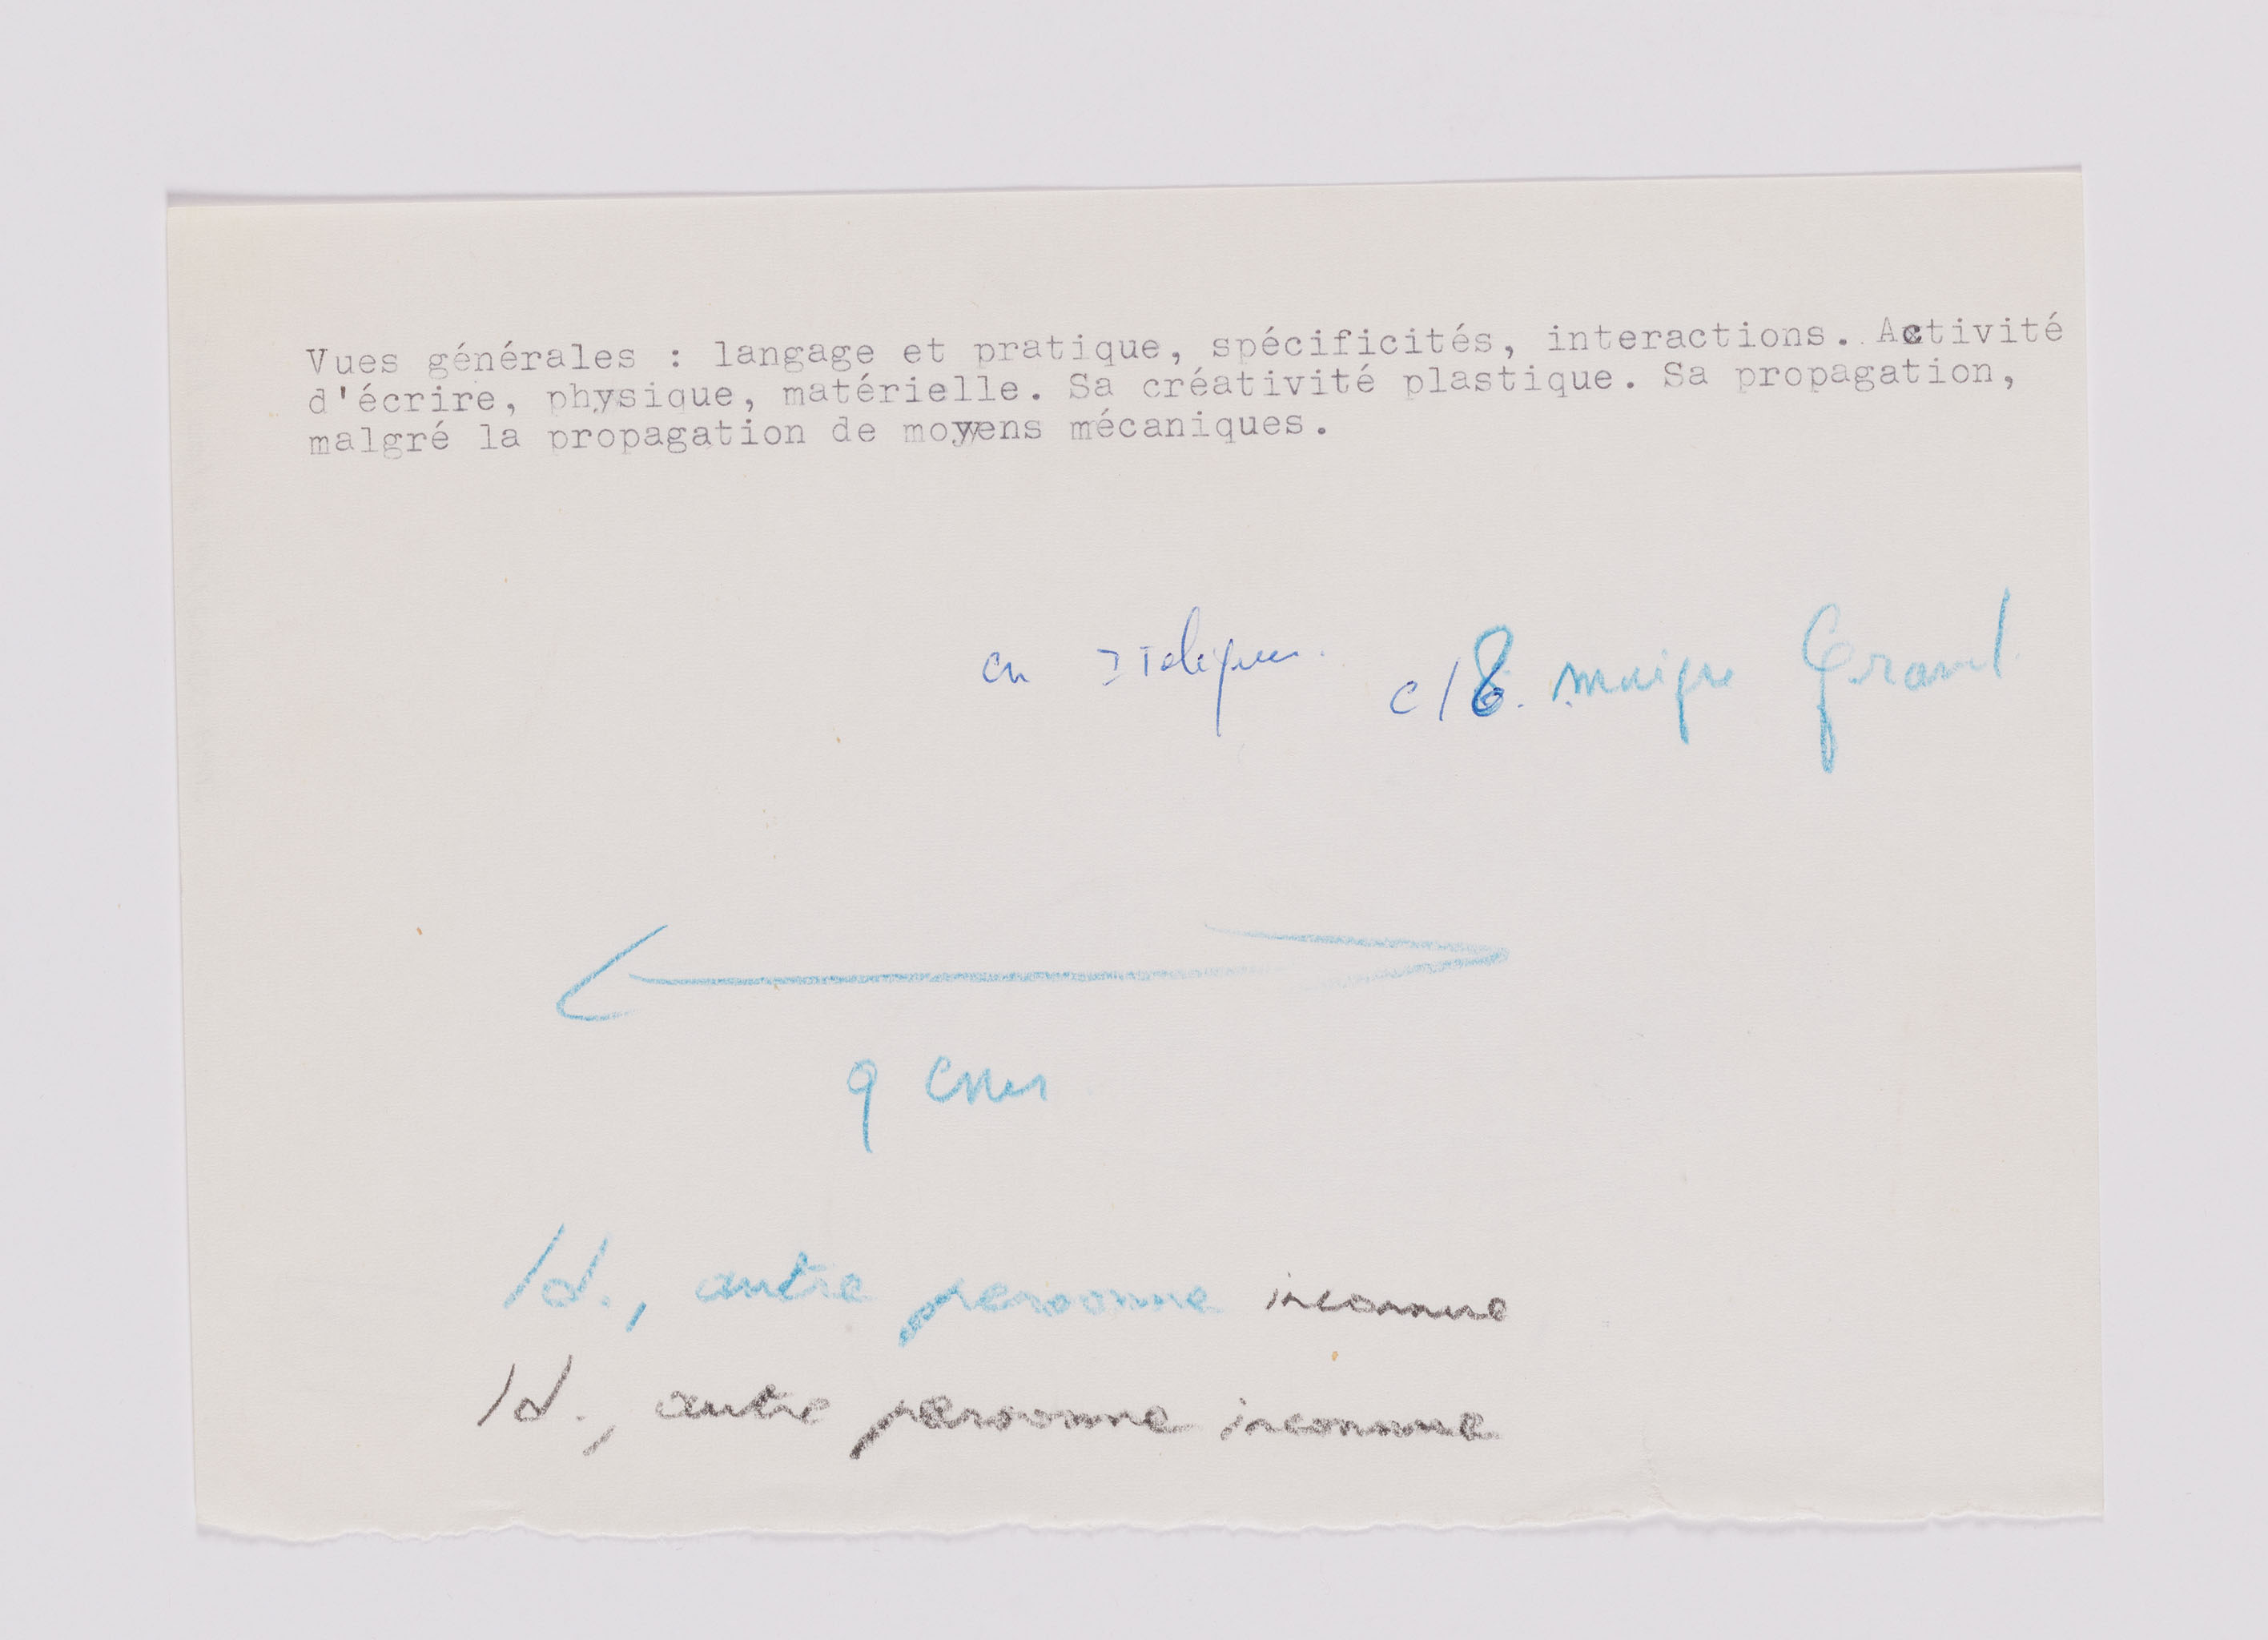 Vues générales : langage et pratique, spécificités, interactions. Activité
d'écrire, physique, matérielle. Sa créativité plastique. Sa propagation,
malgré la propagation de moyens mécaniques.
en italiques. c/8. maigre Grand
9 cms
Id., autre personne inconnue
Id., autre personne inconnue